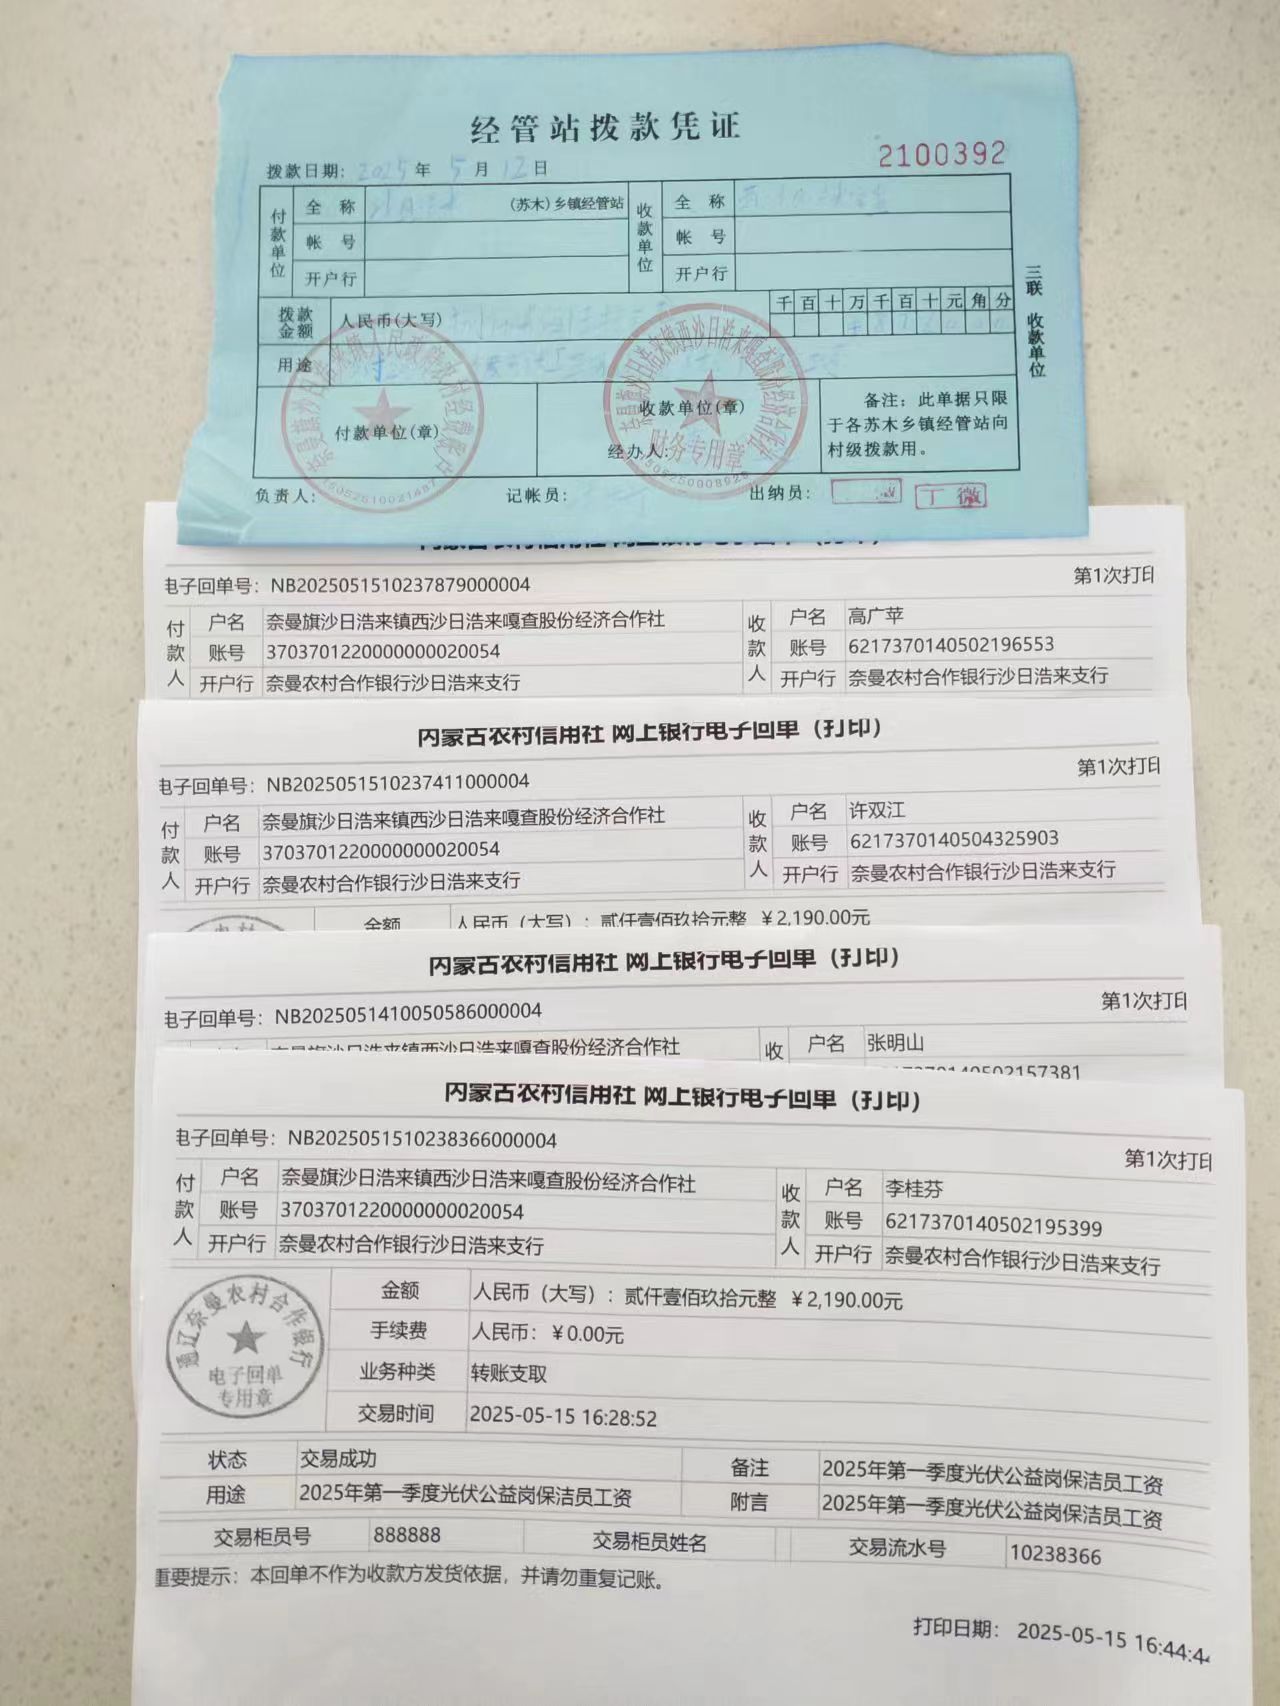 经管站拨款凭证
2100392
拨款日期: 2025 年 5 月 12 日
付款单位
全 称
(苏木)乡镇经管站
收款单位
全 称
帐 号
帐 号
开户行
开户行
三联 收款单位
拨款金额
人民币(大写)
千 百 十 万 千 百 十 元 角 分
用途
付款单位(章)
收款单位(章)
经办人:
财务专用章
备注：此单据只限于各苏木乡镇经管站向村级拨款用。
负责人:
记帐员:
出纳员:
丁 微
电子回单号: NB2025051510237879000004
第1次打印
付款人
户名 奈曼旗沙日浩来镇西沙日浩来嘎查股份经济合作社
收款人
户名 高广苹
账号 3703701220000000020054
账号 6217370140502196553
开户行 奈曼农村合作银行沙日浩来支行
开户行 奈曼农村合作银行沙日浩来支行
内蒙古农村信用社 网上银行电子回单（打印）
电子回单号: NB2025051510237411000004
第1次打印
付款人
户名 奈曼旗沙日浩来镇西沙日浩来嘎查股份经济合作社
收款人
户名 许双江
账号 3703701220000000020054
账号 6217370140504325903
开户行 奈曼农村合作银行沙日浩来支行
开户行 奈曼农村合作银行沙日浩来支行
金额 人民币（大写）: 贰仟壹佰玖拾元整 ￥2,190.00元
内蒙古农村信用社 网上银行电子回单（打印）
电子回单号: NB2025051410050586000004
第1次打印
奈曼旗沙日浩来镇西沙日浩来嘎查股份经济合作社
收
户名 张明山
内蒙古农村信用社 网上银行电子回单（打印）
电子回单号: NB2025051510238366000004
第1次打印
付款人
户名 奈曼旗沙日浩来镇西沙日浩来嘎查股份经济合作社
收款人
户名 李桂芬
账号 3703701220000000020054
账号 6217370140502195399
开户行 奈曼农村合作银行沙日浩来支行
开户行 奈曼农村合作银行沙日浩来支行
通辽奈曼农村合作银行
电子回单
专用章
金额 人民币（大写）: 贰仟壹佰玖拾元整 ￥2,190.00元
手续费 人民币: ￥0.00元
业务种类 转账支取
交易时间 2025-05-15 16:28:52
状态 交易成功
备注 2025年第一季度光伏公益岗保洁员工资
用途 2025年第一季度光伏公益岗保洁员工资
附言 2025年第一季度光伏公益岗保洁员工资
交易柜员号 888888 交易柜员姓名 交易流水号 10238366
重要提示: 本回单不作为收款方发货依据，并请勿重复记账。
打印日期: 2025-05-15 16:44:4